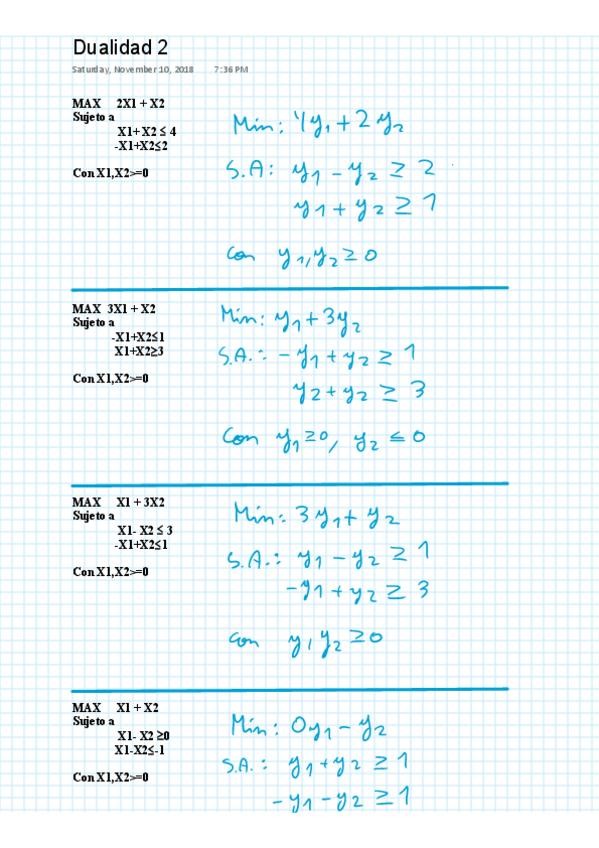 Dualidad 2
Saturday, November 10, 2018 7:36 PM
MAX 2X1 + X2
Sujeto a
X1+X2 ≤ 4
-X1+X2≤2
Con X1,X2>=0
Min: 4y1 + 2y2
S.A: y1 - y2 ≥ 2
y1 + y2 ≥ 1
Con y1,y2 ≥ 0
MAX 3X1 + X2
Sujeto a
-X1+X2≤1
X1+X2≥3
Con X1,X2>=0
Min: y1 + 3y2
S.A.: -y1 + y2 ≥ 1
y2 + y2 ≥ 3
Con y1 ≥0, y2 ≤ 0
MAX X1 + 3X2
Sujeto a
X1- X2 ≤ 3
-X1+X2≤1
Con X1,X2>=0
Min: 3y1 + y2
S.A.: y1 - y2 ≥ 1
-y1 + y2 ≥ 3
Con y,y2 ≥0
MAX X1 + X2
Sujeto a
X1- X2 ≥0
X1-X2≤-1
Con X1,X2>=0
Min: 0y1 - y2
S.A.: y1 + y2 ≥ 1
-y1 - y2 ≥ 1